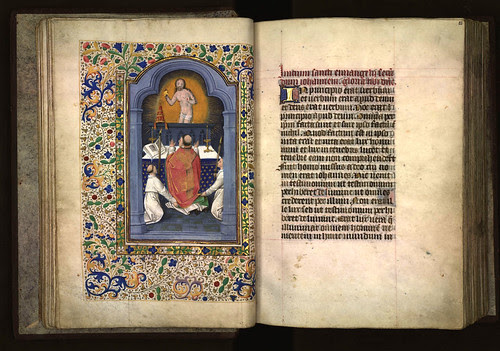 Inicium sancti euuangelii secun
dum iohannem. gloria tibi dne
In principio erat uerbum
et uerbum erat apud deum et
deus erat uerbum. hoc erat in
principio apud deum. Omnia per
ipsum facta sunt et sine ipso factum est
nichil. Quod factum est in ipso
uita erat et uita erat lux ho
minum et lux in tenebris lucet et te
nebre eam non comprehenderunt
Fuit homo missus a deo cui no
men erat iohannes. hic uenit
in testimonium ut testimonium
perhiberet de lumine ut omnes
crederent per illum. Non erat il
le lux sed ut testimonium perhi
beret de lumine. Erat lux uera que
illuminat omnem hominem ue
nientem in hunc mundum in